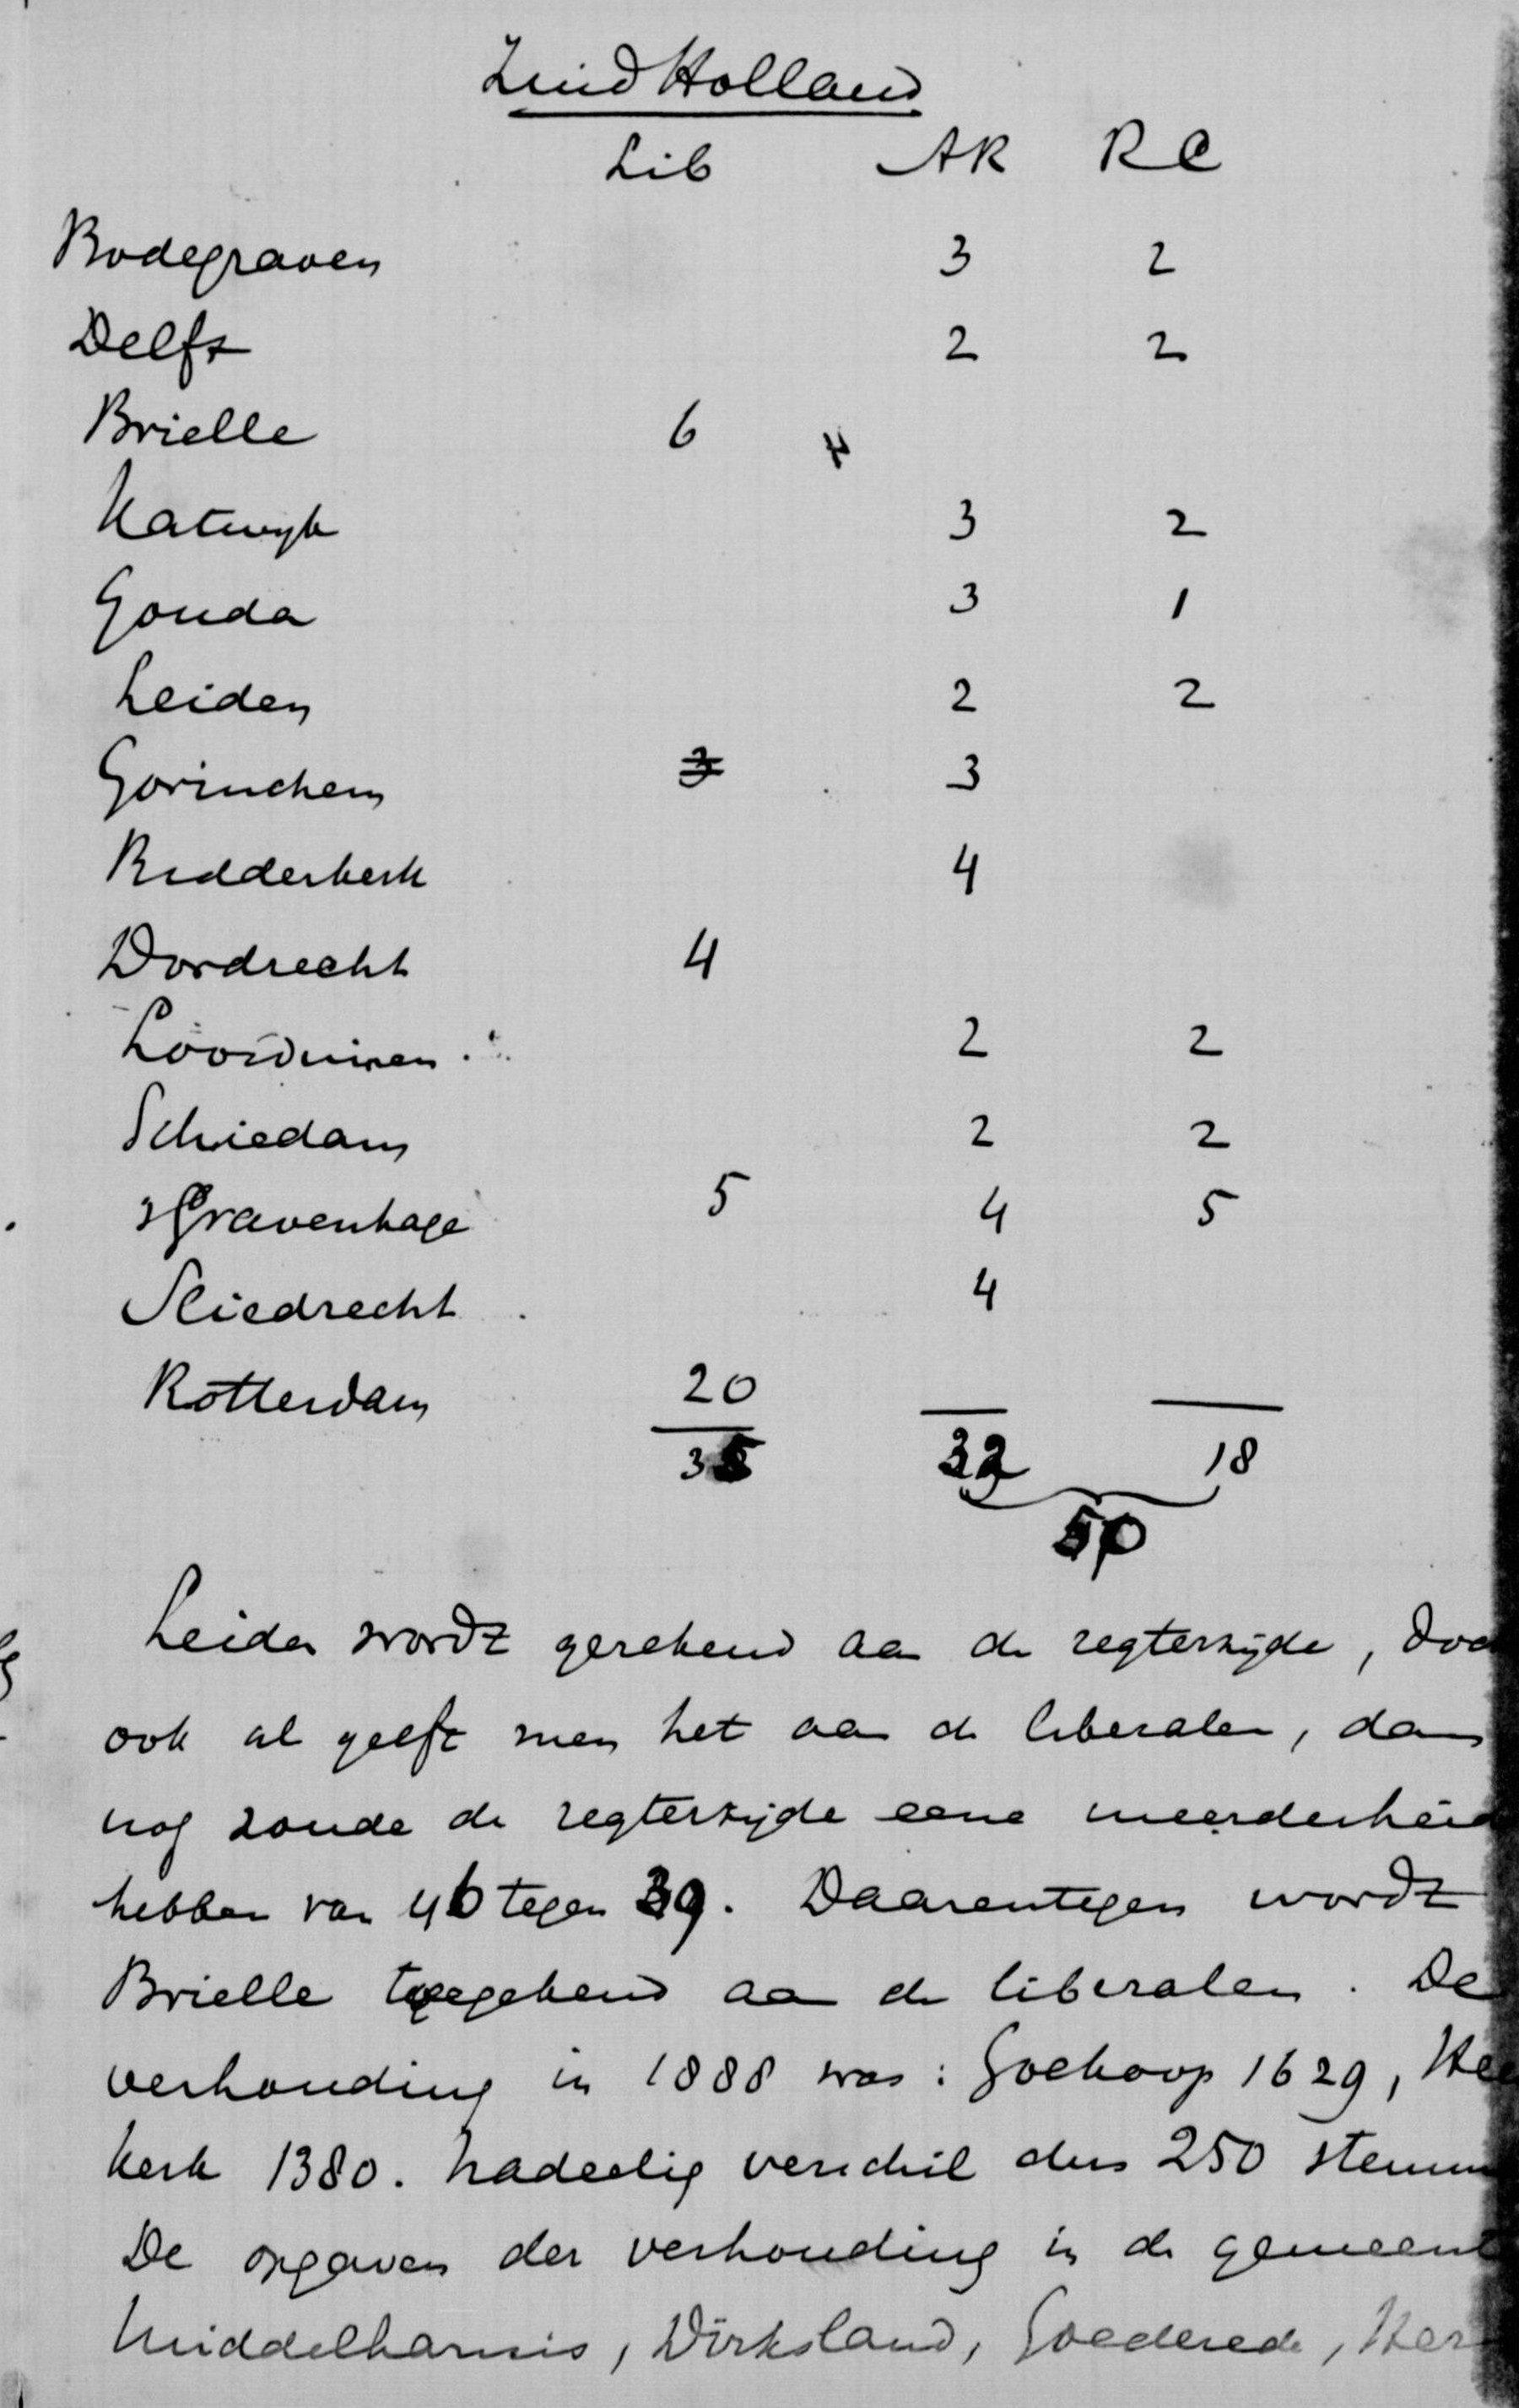 Zuid Holland
Lib AR RC
Bodegraven 3 2
Delft 2 2
Brielle 6
Katwyk 3 2
Gouda 3 1
Leiden 2 2
Gorinchem 3 3
Ridderkerk 4
Dordrecht 4
Loosduinen 2 2
Schiedam 2 2
sGravenhage 5 4 5
Sliedrecht 4
Rotterdam 20
35 32 18
50
Leiden wordt gerekend aan de regterzijde, doch
ook al geeft men het aan de liberalen, dan
nog zoude de regterzijde eene meerderheid
hebben van 46 tegen 39. Daarentegen wordt
Brielle toegekend aan de liberalen. De
verhouding in 1888 was: Goekoop 1629,
kerk 1380. Nadeelig verschil dus 250 stemm
De opgaven der verhouding in de gemeent
Middelharnis, Dirksland, Goederede, Her